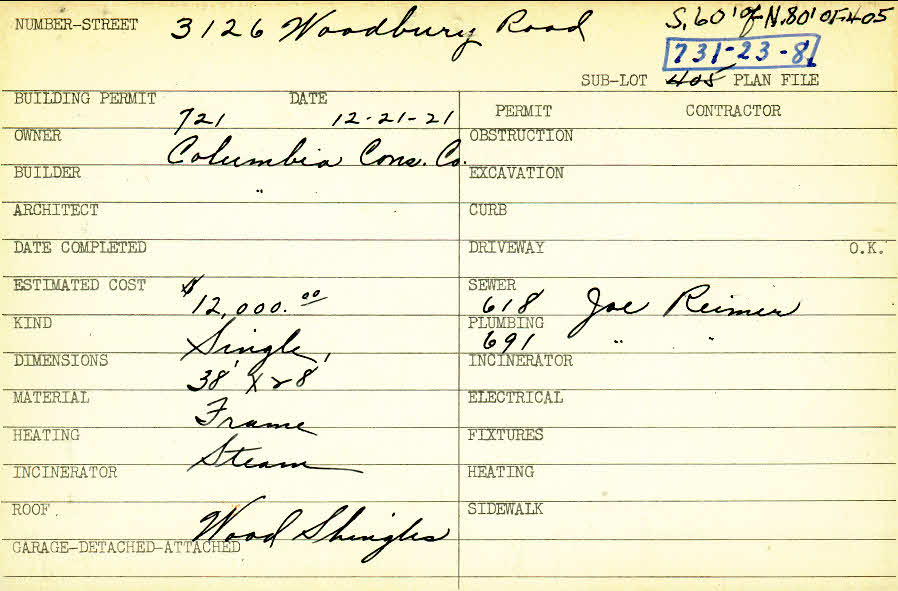 NUMBER-STREET 3126 Woodbury Road S. 60' of N. 80' OF 405
731-23-81
SUB-LOT 405 PLAN FILE
BUILDING PERMIT 721 DATE 12-21-21
PERMIT CONTRACTOR
OWNER Columbia Cons. Co.
OBSTRUCTION
BUILDER "
EXCAVATION
ARCHITECT
CURB
DATE COMPLETED
DRIVEWAY O.K.
ESTIMATED COST $12,000.00
SEWER 618 Joe Reimer
KIND Single
PLUMBING 691 " "
DIMENSIONS 38' x 28'
INCINERATOR
MATERIAL Frame
ELECTRICAL
HEATING Steam
FIXTURES
INCINERATOR
HEATING
ROOF Wood Shingles
SIDEWALK
GARAGE-DETACHED-ATTACHED